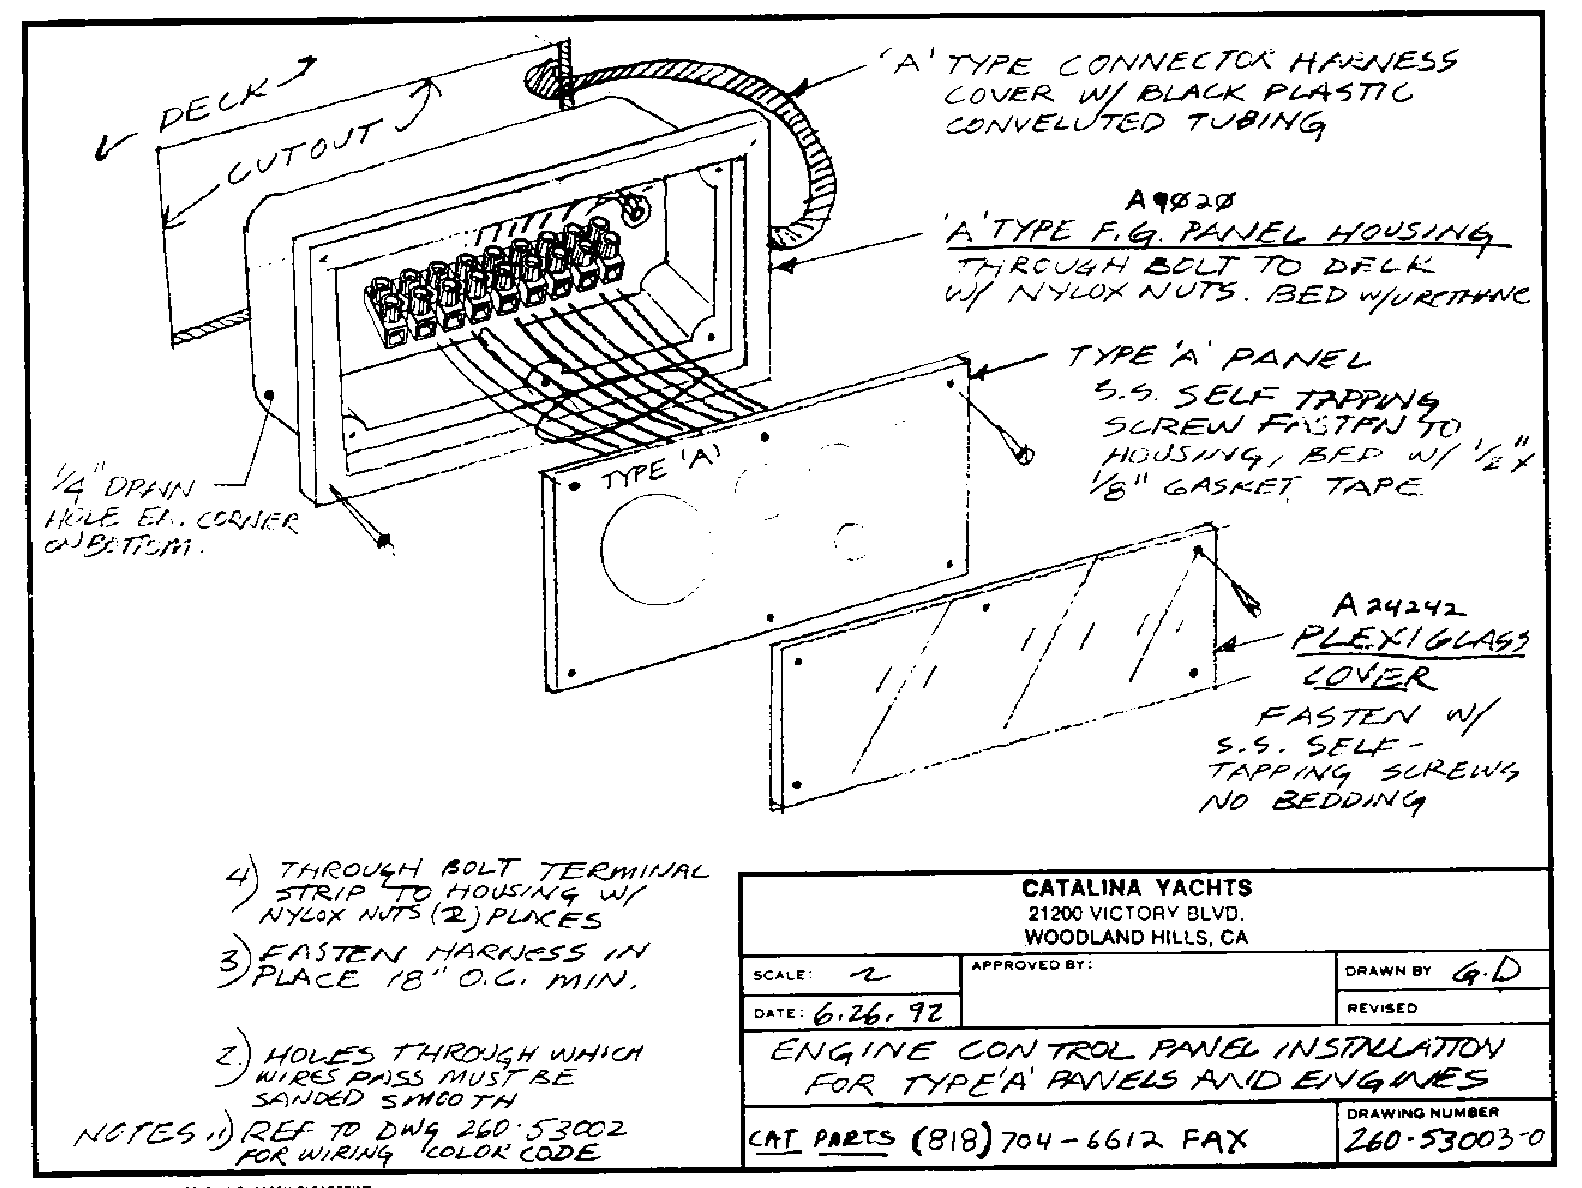 'A' TYPE CONNECTOR HARNESS
COVER W/ BLACK PLASTIC
CONVELUTED TUBING
DECK
CUTOUT
A9020
'A' TYPE F.G. PANEL HOUSING
THROUGH BOLT TO DECK
W/ NYLOX NUTS. BED W/URETHANE
TYPE 'A' PANEL
S.S. SELF TAPPING
SCREW FASTEN TO
HOUSING, BED W/ 1/2" X
1/8" GASKET TAPE
TYPE 'A'
1/4" DRAIN
HOLE EA. CORNER
ON BOTTOM.
A24242
PLEXIGLASS
COVER
FASTEN W/
S.S. SELF-
TAPPING SCREWS
NO BEDDING
4) THROUGH BOLT TERMINAL
STRIP TO HOUSING W/
NYLOX NUTS (2) PLACES
3) FASTEN HARNESS IN
PLACE 18" O.C. MIN.
2) HOLES THROUGH WHICH
WIRES PASS MUST BE
SANDED SMOOTH
NOTES 1) REF TO DWG 260-53002
FOR WIRING COLOR CODE
CATALINA YACHTS
21200 VICTORY BLVD.
WOODLAND HILLS, CA
SCALE: ~
APPROVED BY:
DRAWN BY G.D
DATE: 6.26.92
REVISED
ENGINE CONTROL PANEL INSTALLATION
FOR TYPE 'A' PANELS AND ENGINES
CAT PARTS (818) 704-6612 FAX
DRAWING NUMBER
260-53003-0